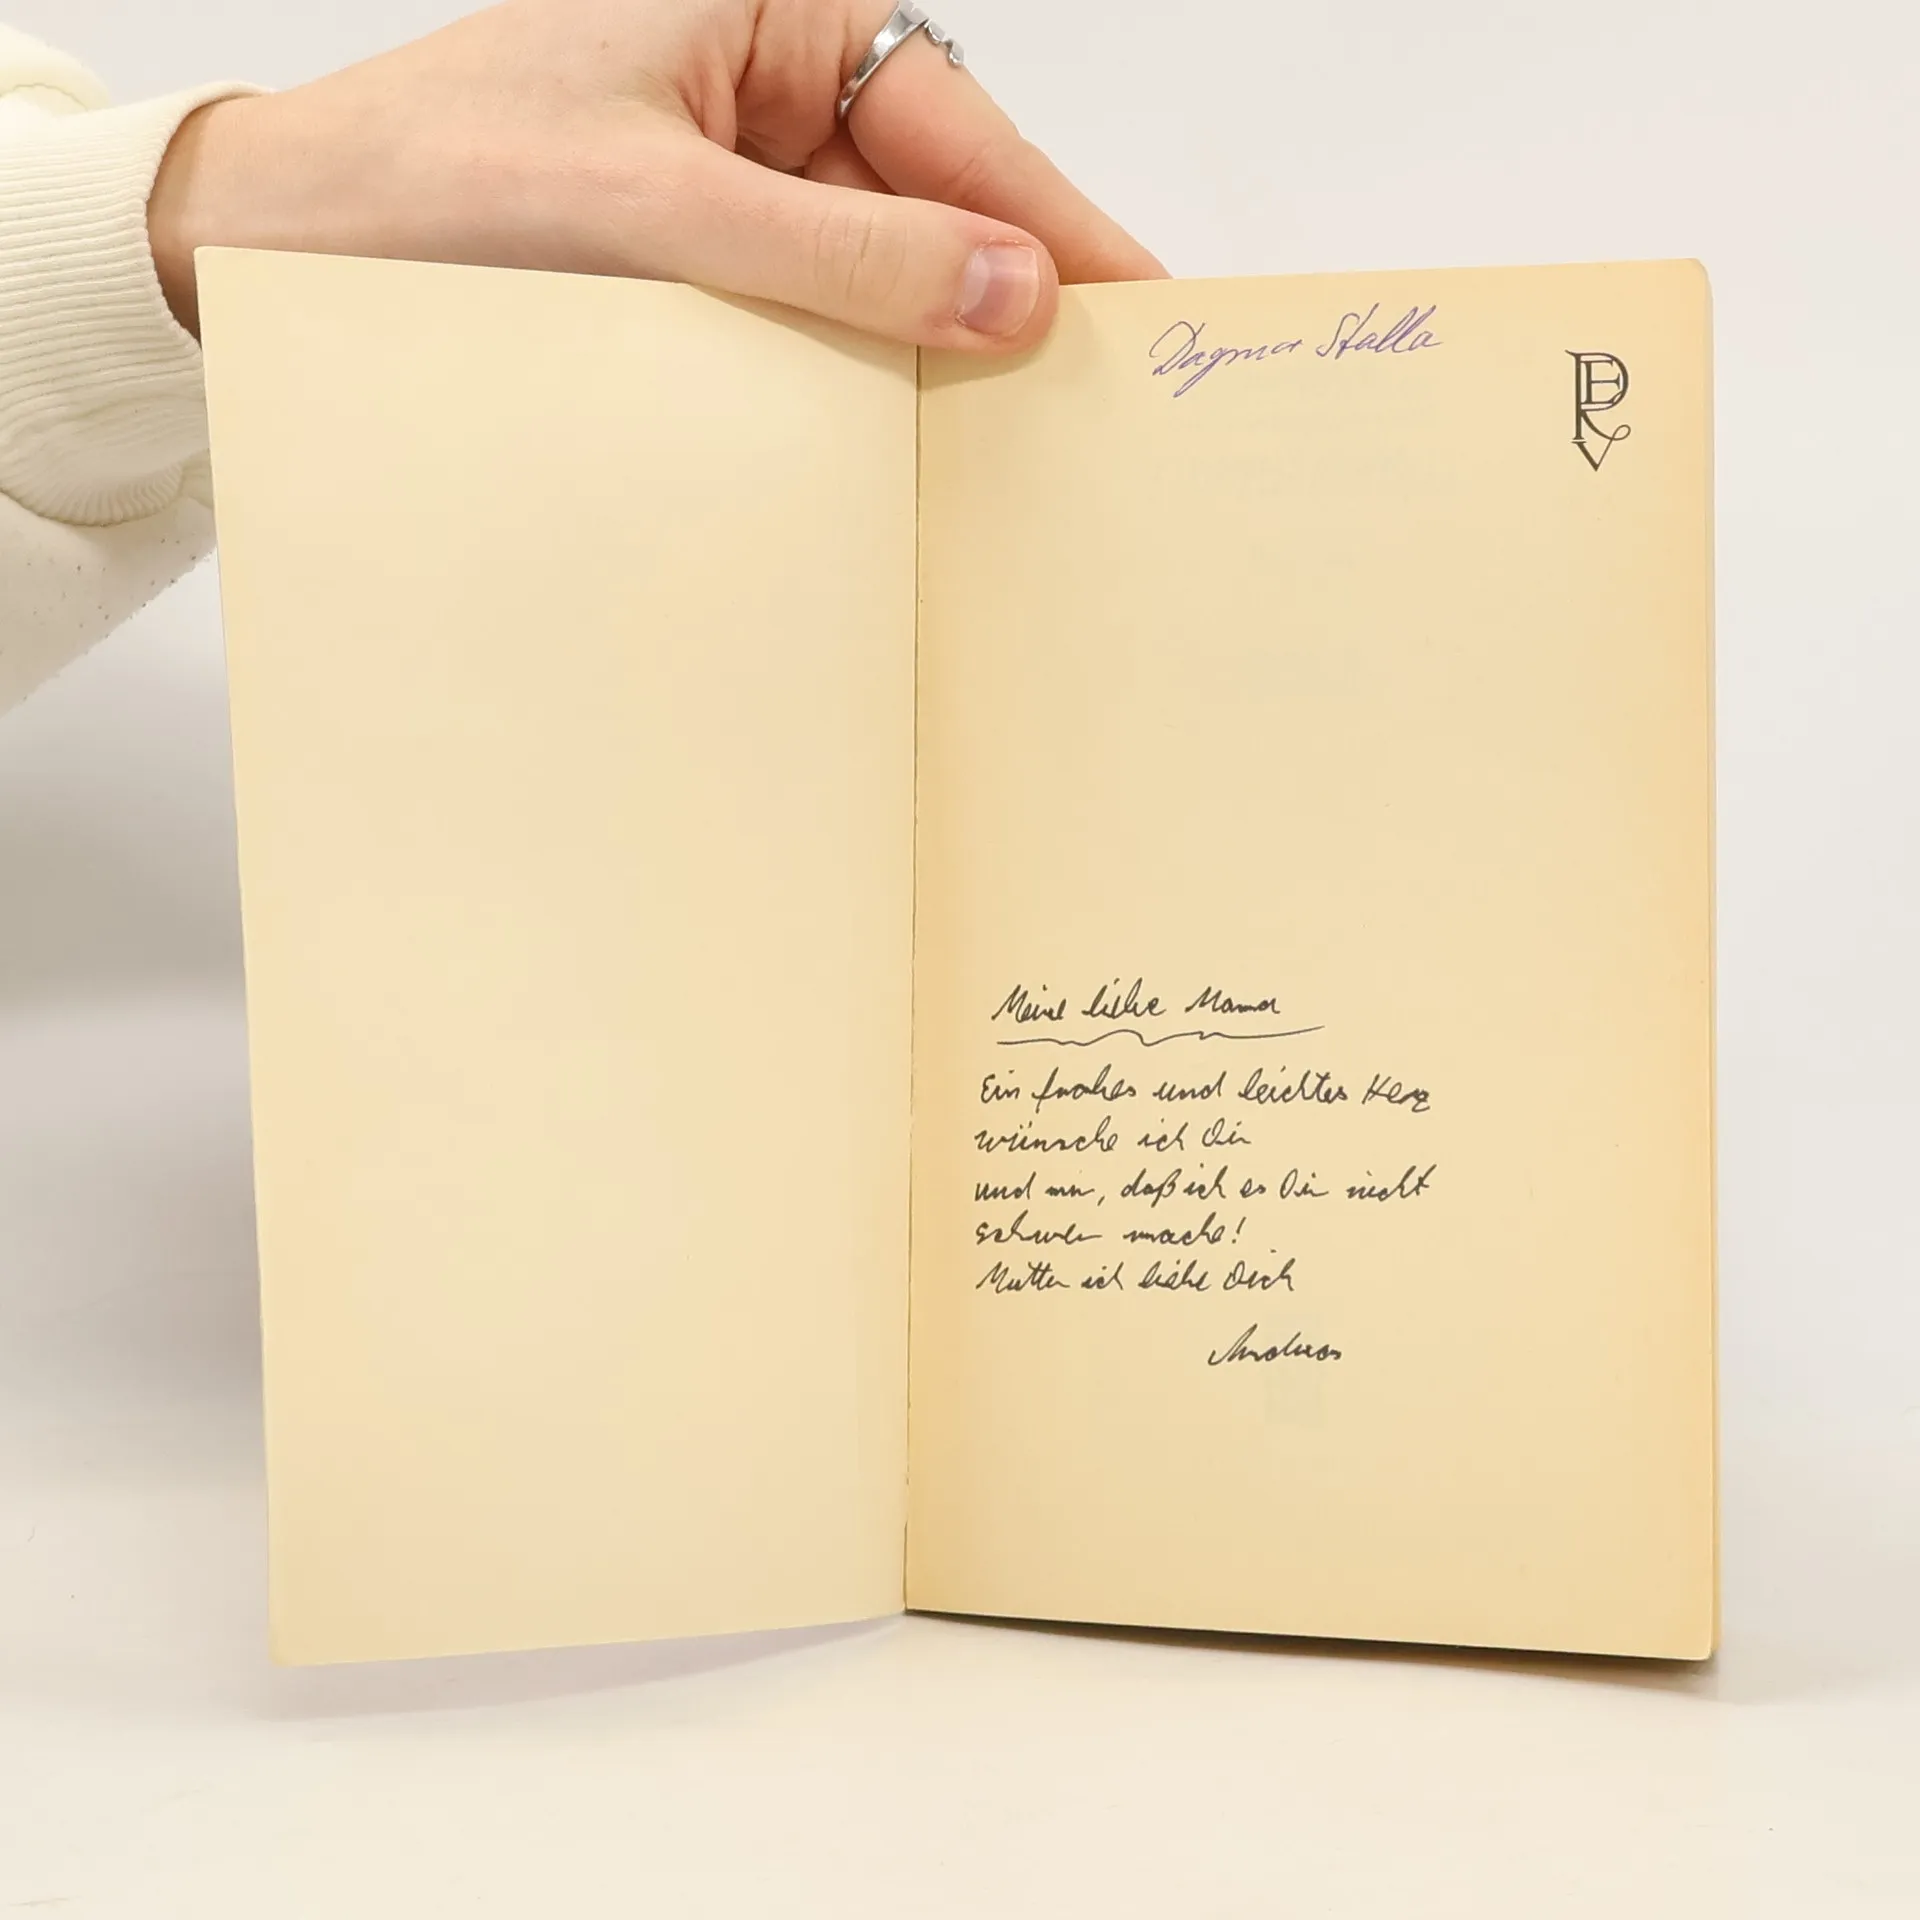 Dagmar Stalla
PEV
Meine liebe Mama
Ein frohes und leichtes Herz
wünsche ich Dir
und mir, daß ich es Dir nicht
schwer mache!
Mutter ich liebe Dich
Andreas